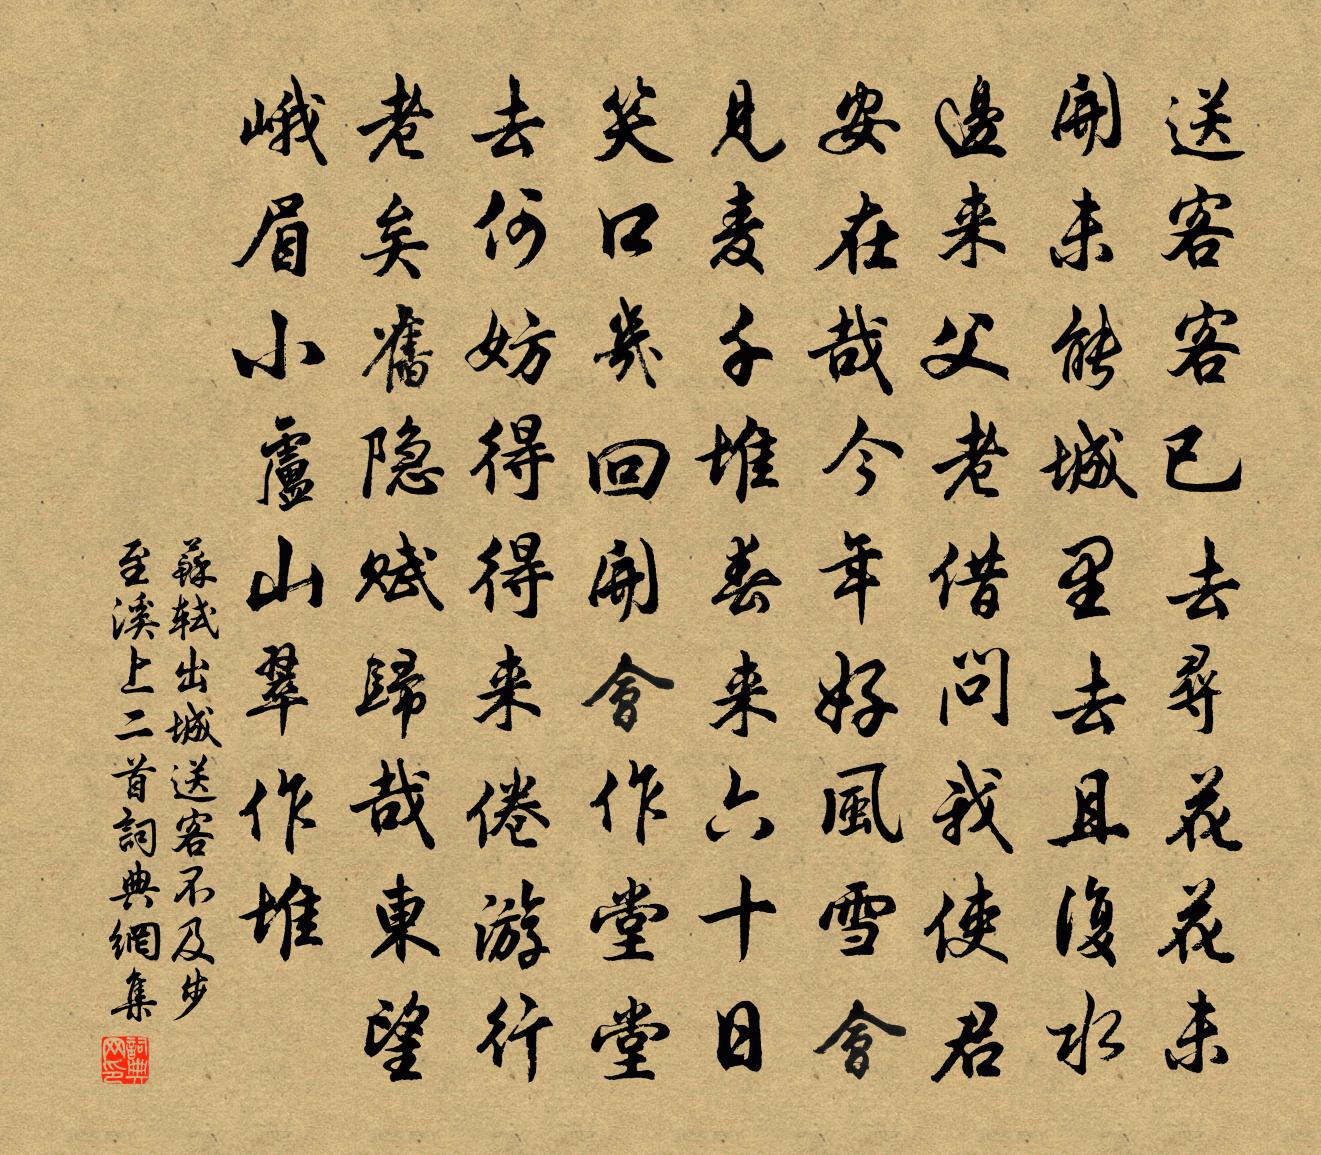 送客客已去尋花花未
開未能城里去且復水
邊来父老借問我使君
安在哉今年好風雪會
見麦千堆春来六十日
笑口幾回開會作堂堂
去何妨得得来倦游行
老矣舊隐賦歸哉東望
峨眉小盧山翠作堆
蘇軾出城送客不及步
至溪上二首詞典網集
詞典
网印